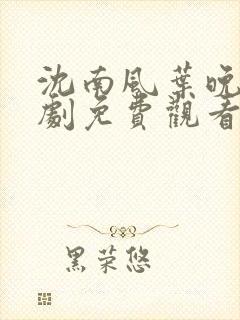 沈南風葉晚
劇免費觀看
黑荣悠